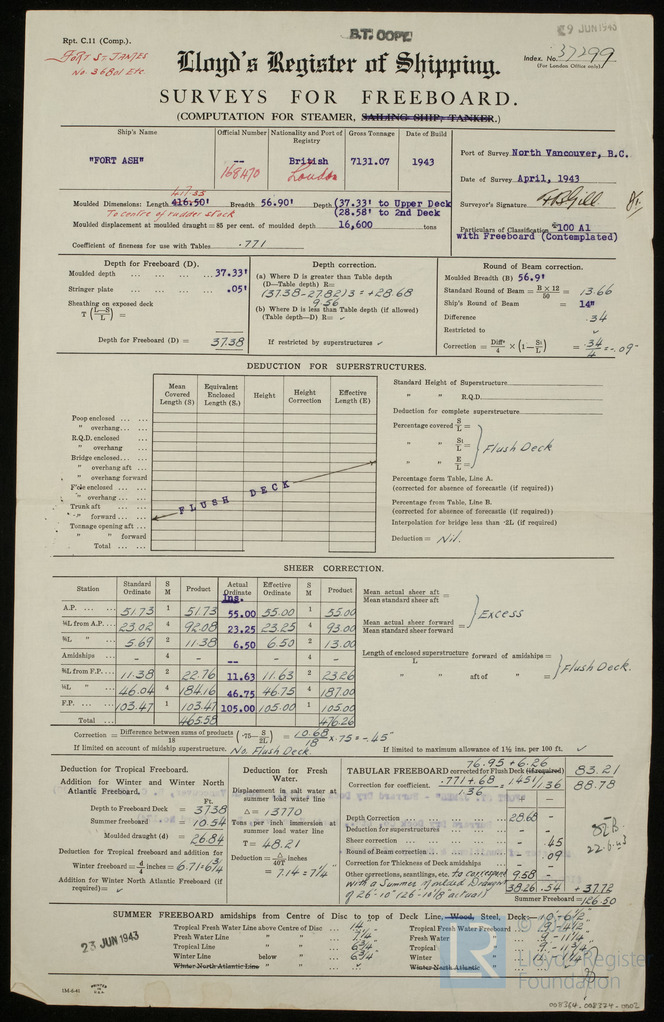 Rpt. C.11 (Comp.).
B.T. COPY
9 JUN 1943
FORT ST JAMES
No. 36801 Etc.
Lloyd's Register of Shipping.
Index. No. 37299
(For London Office only)
SURVEYS FOR FREEBOARD.
(COMPUTATION FOR STEAMER, SAILING SHIP, TANKER.)
Ship's Name Official Number Nationality and Port of Registry Gross Tonnage Date of Build
"FORT ASH" -- British 7131.07 1943
168470 London
Port of Survey North Vancouver, B.C.
Date of Survey April, 1943
Surveyor's Signature
Particulars of Classification 100 A1
with Freeboard (Contemplated)
417.55
Moulded Dimensions: Length 416.50' Breadth 56.90' Depth (37.33' to Upper Deck
To centre of rudder stock (28.58' to 2nd Deck
Moulded displacement at moulded draught = 85 per cent. of moulded depth 16,600 tons
Coefficient of fineness for use with Tables .771
Depth for Freeboard (D).
Moulded depth ... 37.33'
Stringer plate ... .05'
Sheathing on exposed deck
T (L-S/L) =
Depth for Freeboard (D) = 37.38
Depth correction.
(a) Where D is greater than Table depth
(D—Table depth) R=
(37.38-27.82)3 = +28.68
9.56
(b) Where D is less than Table depth (if allowed)
(Table depth—D) R= ✓
If restricted by superstructures ✓
Round of Beam correction.
Moulded Breadth (B) 56.9'
Standard Round of Beam = B × 12/50 = 13.66
Ship's Round of Beam = 14"
Difference .34
Restricted to ✓
Correction = Diffce/4 × (1 - S1/L) = .34/4 = -.09"
DEDUCTION FOR SUPERSTRUCTURES.
Mean Covered Length (S) Equivalent Enclosed Length (S1) Height Height Correction Effective Length (E)
Poop enclosed ...
" overhang ...
R.Q.D. enclosed ...
" overhang
Bridge enclosed ...
" overhang aft ...
" overhang forward
F'cle enclosed ...
" overhang ...
Trunk aft ...
" forward ...
Tonnage opening aft ...
" " forward
Total ...
FLUSH DECK
Standard Height of Superstructure
" " R.Q.D.
Deduction for complete superstructure
Percentage covered S/L =
" " S1/L =
" " E/L =
Flush Deck
Percentage from Table, Line A.
(corrected for absence of forecastle (if required))
Percentage from Table, Line B.
(corrected for absence of forecastle (if required))
Interpolation for bridge less than ·2L (if required)
Deduction = Nil.
SHEER CORRECTION.
Station Standard Ordinate S M Product Actual Ordinate Effective Ordinate S M Product
Ins.
A.P. ... 51.73 1 51.73 55.00 55.00 1 55.00
⅙L from A.P. ... 23.02 4 92.08 23.25 23.25 4 93.00
⅓L " ... 5.69 2 11.38 6.50 6.50 2 13.00
Amidships ... - 4 - -- - 4 -
⅓L from F.P. ... 11.38 2 22.76 11.63 11.63 2 23.26
⅙L " ... 46.04 4 184.16 46.75 46.75 4 187.00
F.P. ... 103.47 1 103.47 105.00 105.00 1 105.00
Total ... 465.58 476.26
Mean actual sheer aft
Mean standard sheer aft =
Mean actual sheer forward
Mean standard sheer forward =
Excess
Length of enclosed superstructure/L forward of amidships =
" " aft of " =
Flush Deck.
Correction = Difference between sums of products/18 (·75 - S/2L) = 10.68/18 × .75 = -.45"
If limited on account of midship superstructure. No. Flush Deck. If limited to maximum allowance of 1½ ins. per 100 ft. ✓
Deduction for Tropical Freeboard.
Addition for Winter and Winter North Atlantic Freeboard.
Ft.
Depth to Freeboard Deck = 37.38
Summer freeboard = 10.54
Moulded draught (d) = 26.84
Deduction for Tropical freeboard and addition for
Winter freeboard = d/4 inches = 6.71 = 6¾
Addition for Winter North Atlantic Freeboard (if required) = ✓
Deduction for Fresh Water.
Displacement in salt water at summer load water line
Δ = 13770
Tons per inch immersion at summer load water line
T = 48.21
Deduction = Δ/40T inches
= 7.14 = 7¼"
76.95 + 6.26
TABULAR FREEBOARD corrected for Flush Deck (if required) 83.21
Correction for coefficient. .771+.68/1.36 = 1.451/1.36 88.78
+ -
Depth Correction ... 28.68 -
Deduction for superstructures ... - -
Sheer correction ... - .45
Round of Beam correction ... - .09
Correction for Thickness of Deck amidships - -
Other corrections, scantlings, etc. to correspond 9.58 -
with a Summer moulded Draught 38.26 .54 + 37.72
of 26'-10" (26'-10⅛" actual)
Summer Freeboard = 126.50
22.6.43
SUMMER FREEBOARD amidships from Centre of Disc to top of Deck Line, Wood, Steel, Deck:— 10'-6½"
Tropical Fresh Water Line above Centre of Disc ... 14 Tropical Fresh Water Freeboard ... 9'-4½
Fresh Water Line " " ... 7¼ Fresh Water " ... 9'-11¼"
Tropical Line " " ... 6¾ Tropical " ... 9'-11¾
Winter Line below " " ... 6¾ Winter " ... 11'-1¼
Winter North Atlantic Line " " Winter North Atlantic "
23 JUN 1943
1M-6-41 PRINTED IN U.S.A.
© Lloyd's Register
Foundation
008364-008374-0002